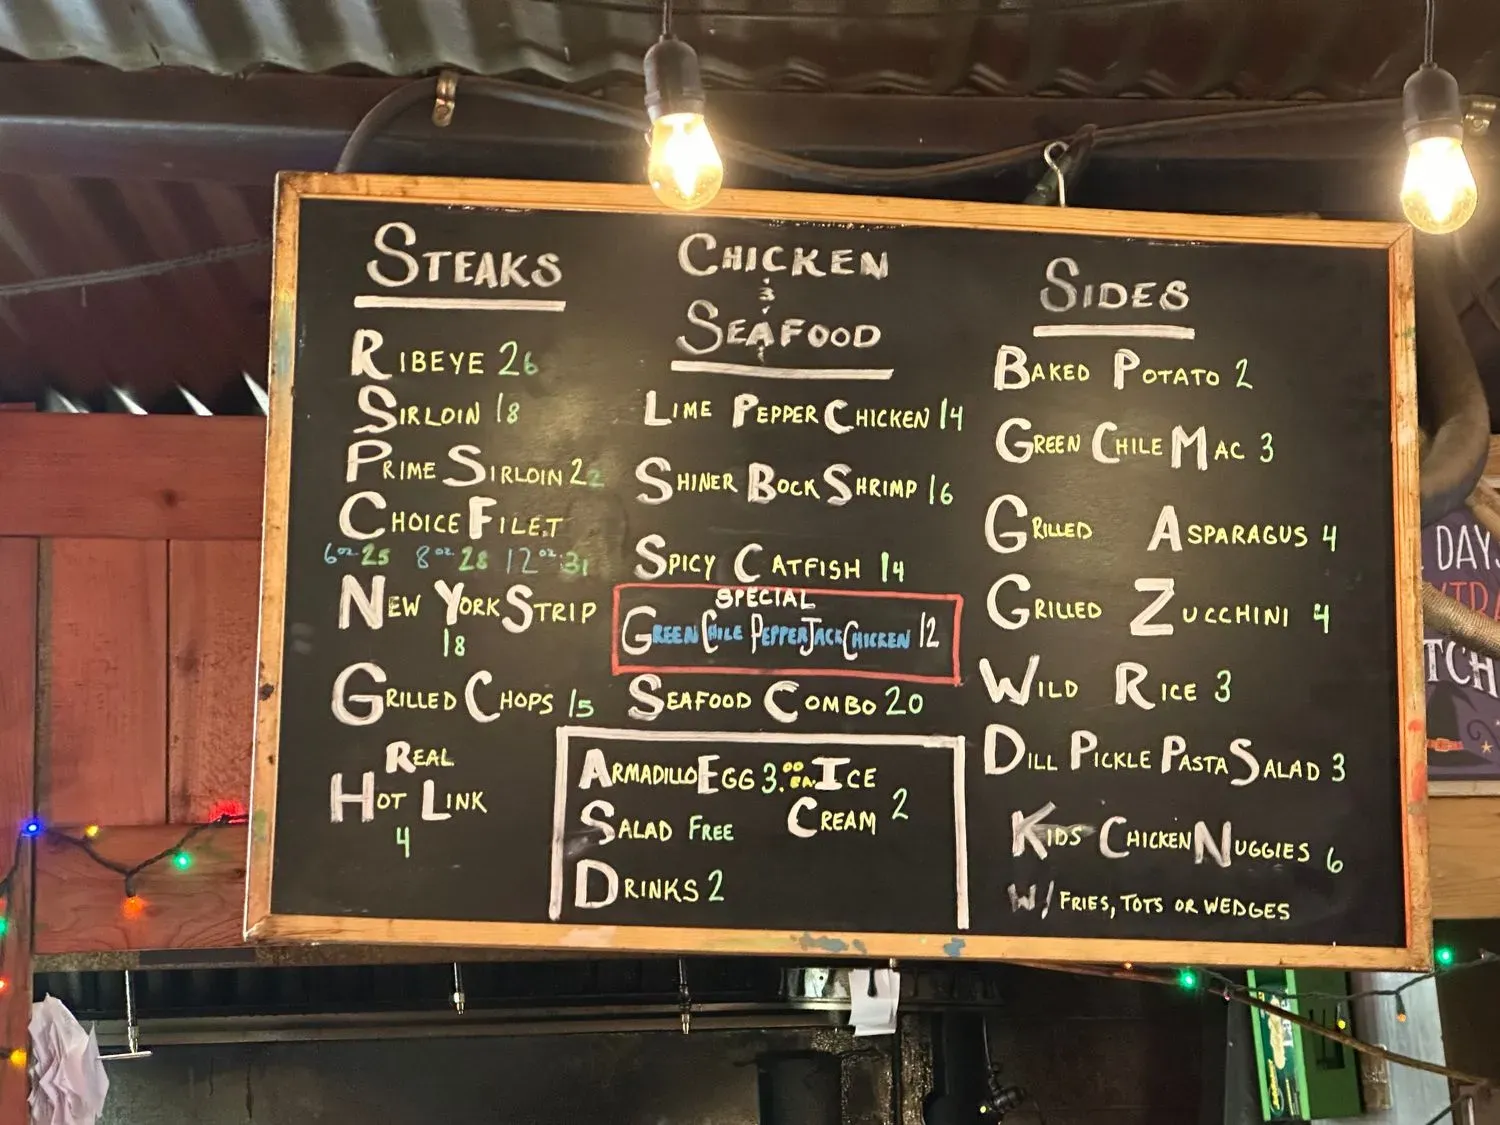 STEAKS
RIBEYE 26
SIRLOIN 18
PRIME SIRLOIN 22
CHOICE FILET
6oz. 25 8oz. 28 12oz. 31
NEW YORK STRIP
18
GRILLED CHOPS 15
REAL
HOT LINK
4
CHICKEN
&
SEAFOOD
LIME PEPPER CHICKEN 14
SHINER BOCK SHRIMP 16
SPICY CATFISH 14
SPECIAL
GREEN CHILE PEPPERJACK CHICKEN 12
SEAFOOD COMBO 20
ARMADILLO EGG 3.00 EA.
SALAD FREE
DRINKS 2
ICE
CREAM 2
SIDES
BAKED POTATO 2
GREEN CHILE MAC 3
GRILLED ASPARAGUS 4
GRILLED ZUCCHINI 4
WILD RICE 3
DILL PICKLE PASTA SALAD 3
KIDS CHICKEN NUGGIES 6
W/ FRIES, TOTS OR WEDGES
DAYS